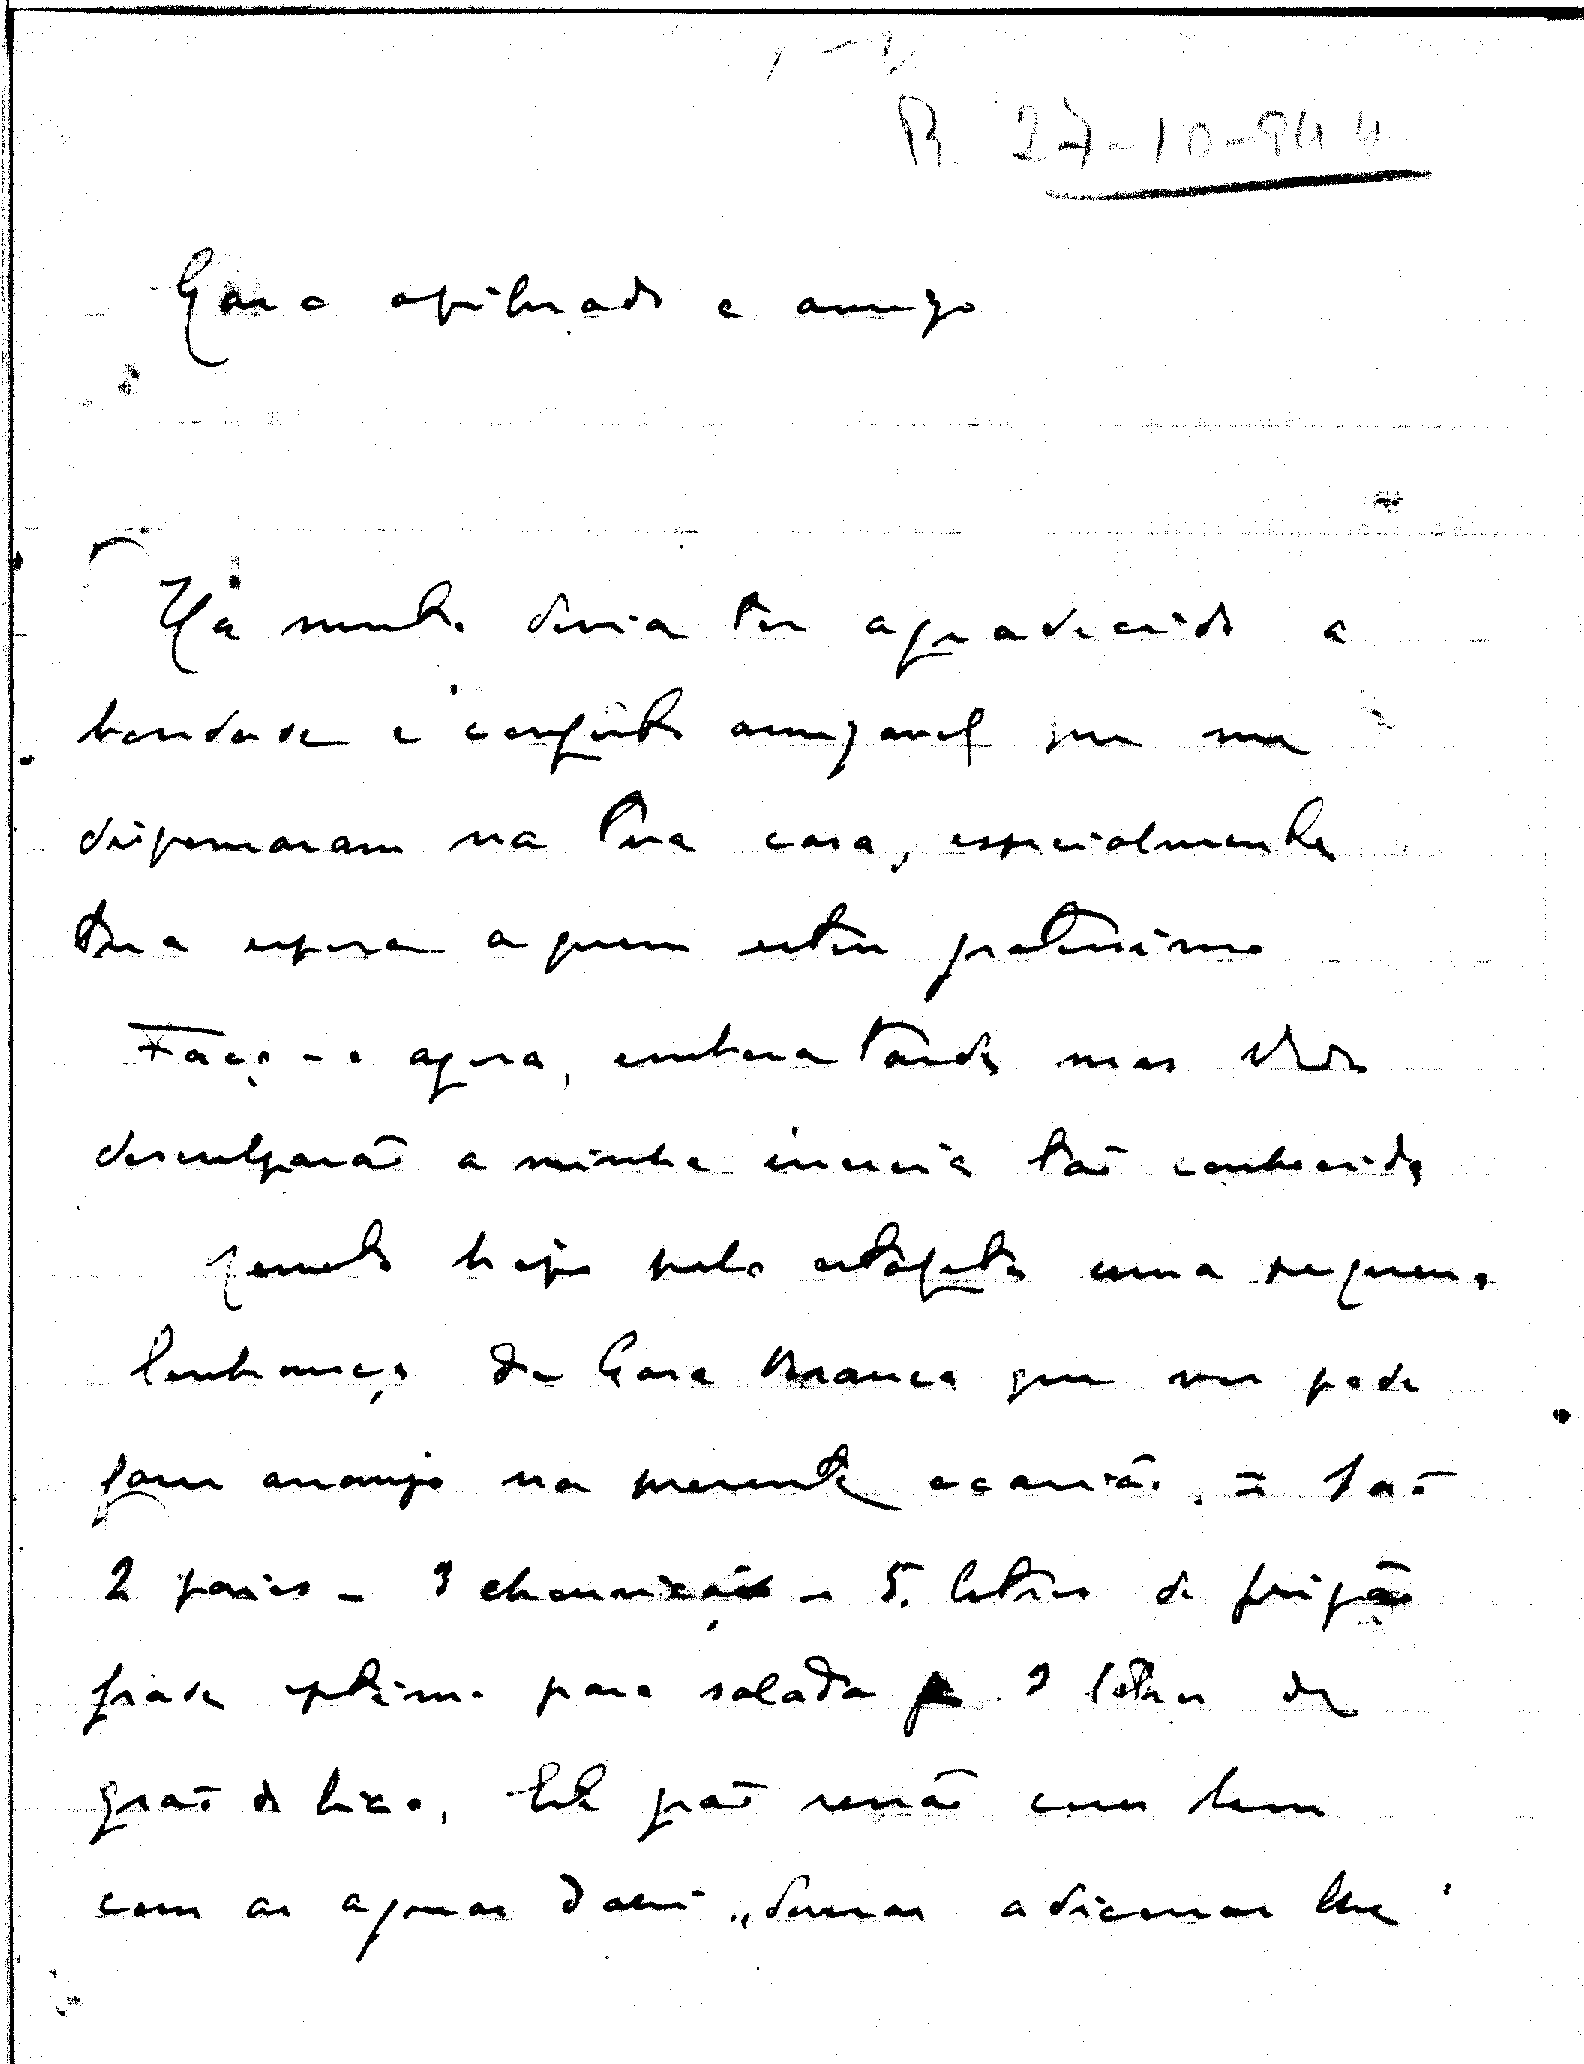 R 27-10-944
Caro afilhado e amigo
Há muito devia ter agradecido a
bondade e conforto amigavel que me
dispensaram na tua casa, especialmente
tua esposa a quem estou gratissimo
Faço-o agora, embora tarde mas
desculparão a minha inercia tão conhecida
Remeto hoje pelo estafeta uma pequena
lembrança da Casa Branca que vos pode
fazer arranjo na presente ocasião. = São
2 paios - 3 chouriços - 5 litros de feijão
frade optimo para salada e 3 litros de
grão de bico, Este grão não coze bem
com as aguas daí „devem adicionar lhe